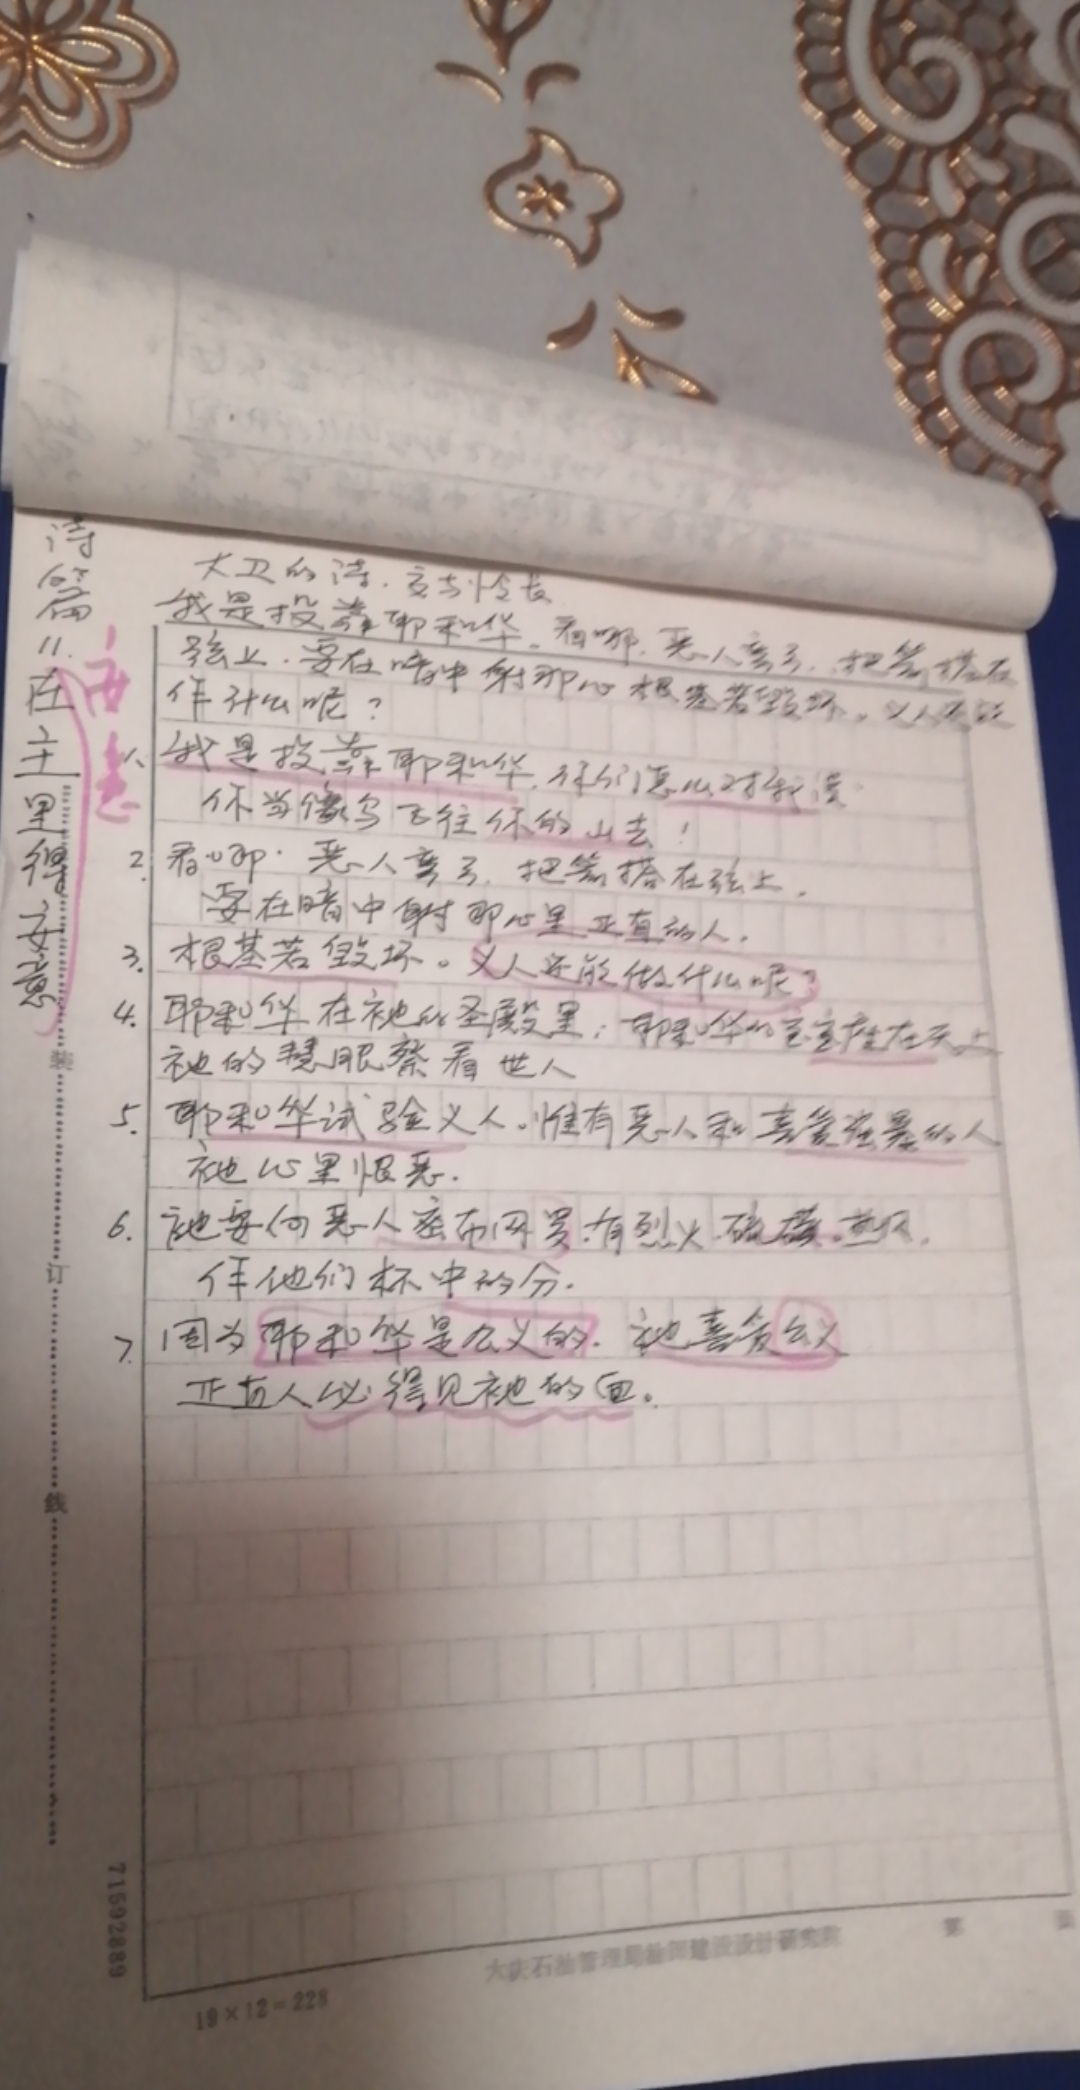 诗篇11.在主里得安慰
安慰
大卫的诗.交与伶长
我是投靠耶和华。看哪.恶人弯弓.把箭搭在
弦上.要在暗中射那心根基若毁坏。义人还能
作什么呢?
1. 我是投靠耶和华.你们怎么对我说
你当像鸟飞往你的山去!
2. 看哪.恶人弯弓.把箭搭在弦上.
要在暗中射那心里正直的人.
3. 根基若毁坏。义人还能做什么呢?
4. 耶和华在祂的圣殿里;耶和华的宝座在天上
祂的慧眼察看世人
5. 耶和华试验义人。惟有恶人和喜爱强暴的人
祂心里恨恶.
6. 祂要向恶人密布网罗.有烈火.硫磺.热风.
作他们杯中的分.
7. 因为耶和华是公义的.祂喜爱公义
正直人必得见祂的面。
装
订
线
71592889
19×12=228
大庆石油管理局油田建设设计研究院
第 页